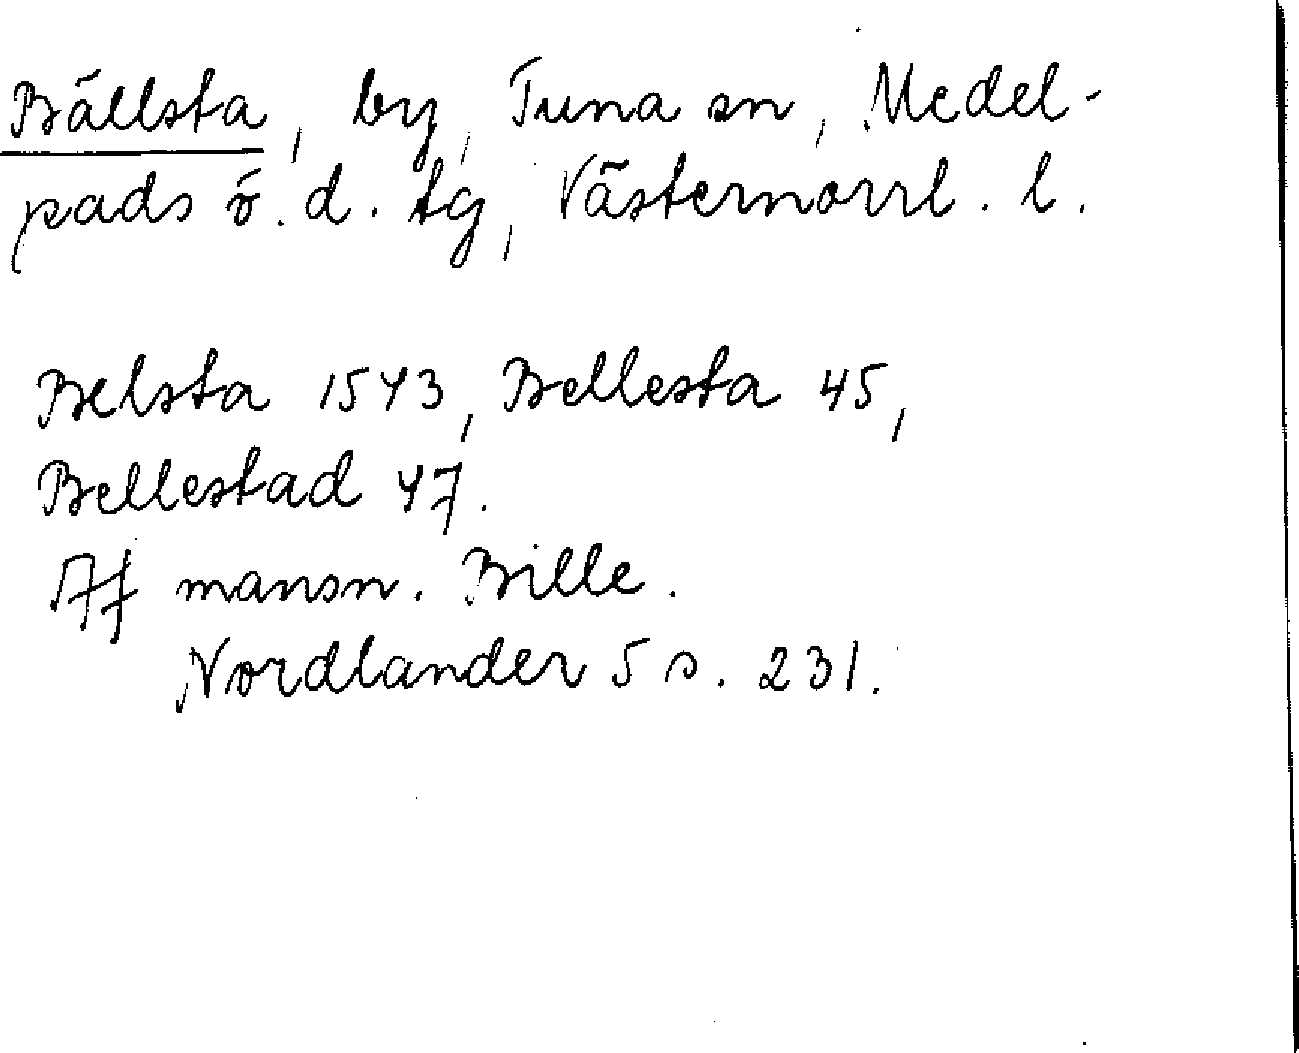 Bällsta, by, Tuna sn, Medel-
pads ö. d. tg, Västernorrl. l.
Belsta 1543, Bellesta 45,
Bellestad 47.
Af mansn. Bille.
Nordlander 5 s. 231.